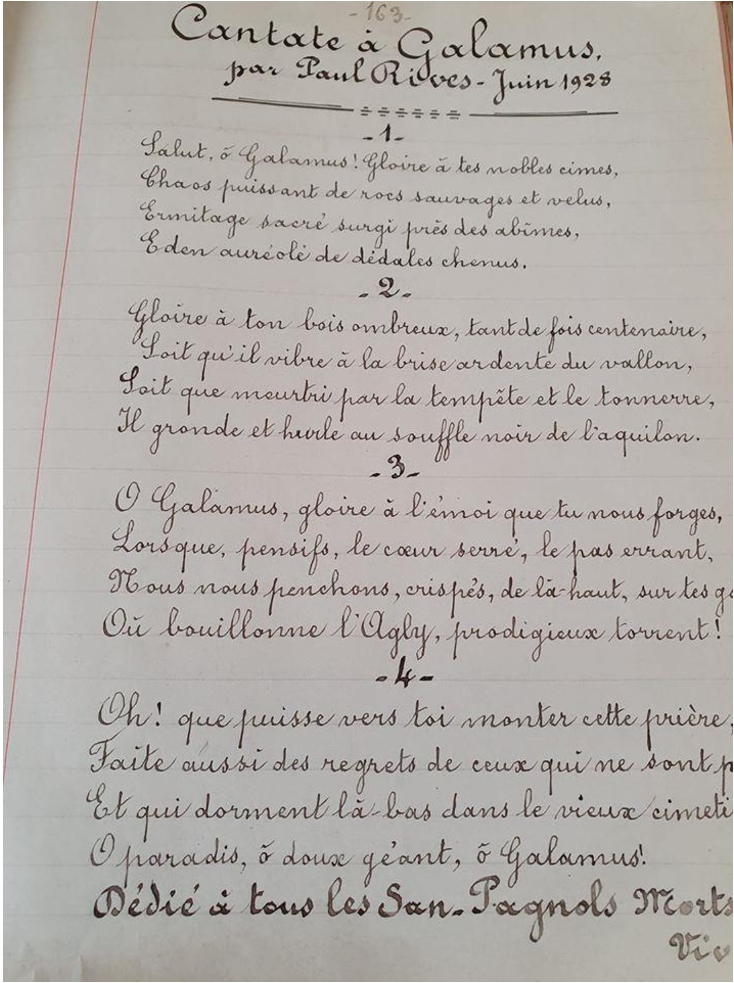 -163-
Cantate à Galamus,
par Paul Rives - Juin 1928
-1-
Salut, ô Galamus! Gloire à tes nobles cimes,
Chaos puissant de rocs sauvages et velus,
Ermitage sacré surgi près des abîmes,
Eden auréolé de dédales chenus.
-2-
Gloire à ton bois ombreux, tant de fois centenaire,
Soit qu'il vibre à la brise ardente du vallon,
Soit que meurtri par la tempête et le tonnerre,
Il gronde et hurle au souffle noir de l'aquilon.
-3-
O Galamus, gloire à l'émoi que tu nous forges,
Lorsque, pensifs, le cœur serré, le pas errant,
Nous nous penchons, crispés, de là-haut, sur tes
Où bouillonne l'Agly, prodigieux torrent!
-4-
Oh! que puisse vers toi monter cette prière,
Faite aussi des regrets de ceux qui ne sont
Et qui dorment là-bas dans le vieux
O paradis, ô doux géant, ô Galamus!
Dédié à tous les San-Pagnols Morts